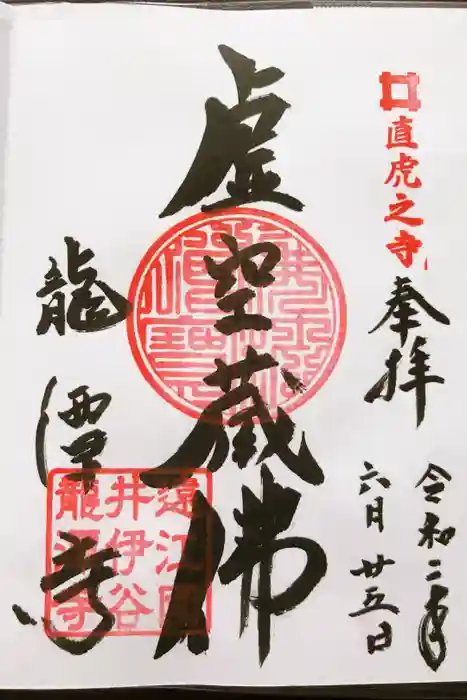 直虎之寺
奉拝
令和二年
六月廿五日
虚空蔵佛
龍潭寺
遠江国
井伊谷
龍潭寺